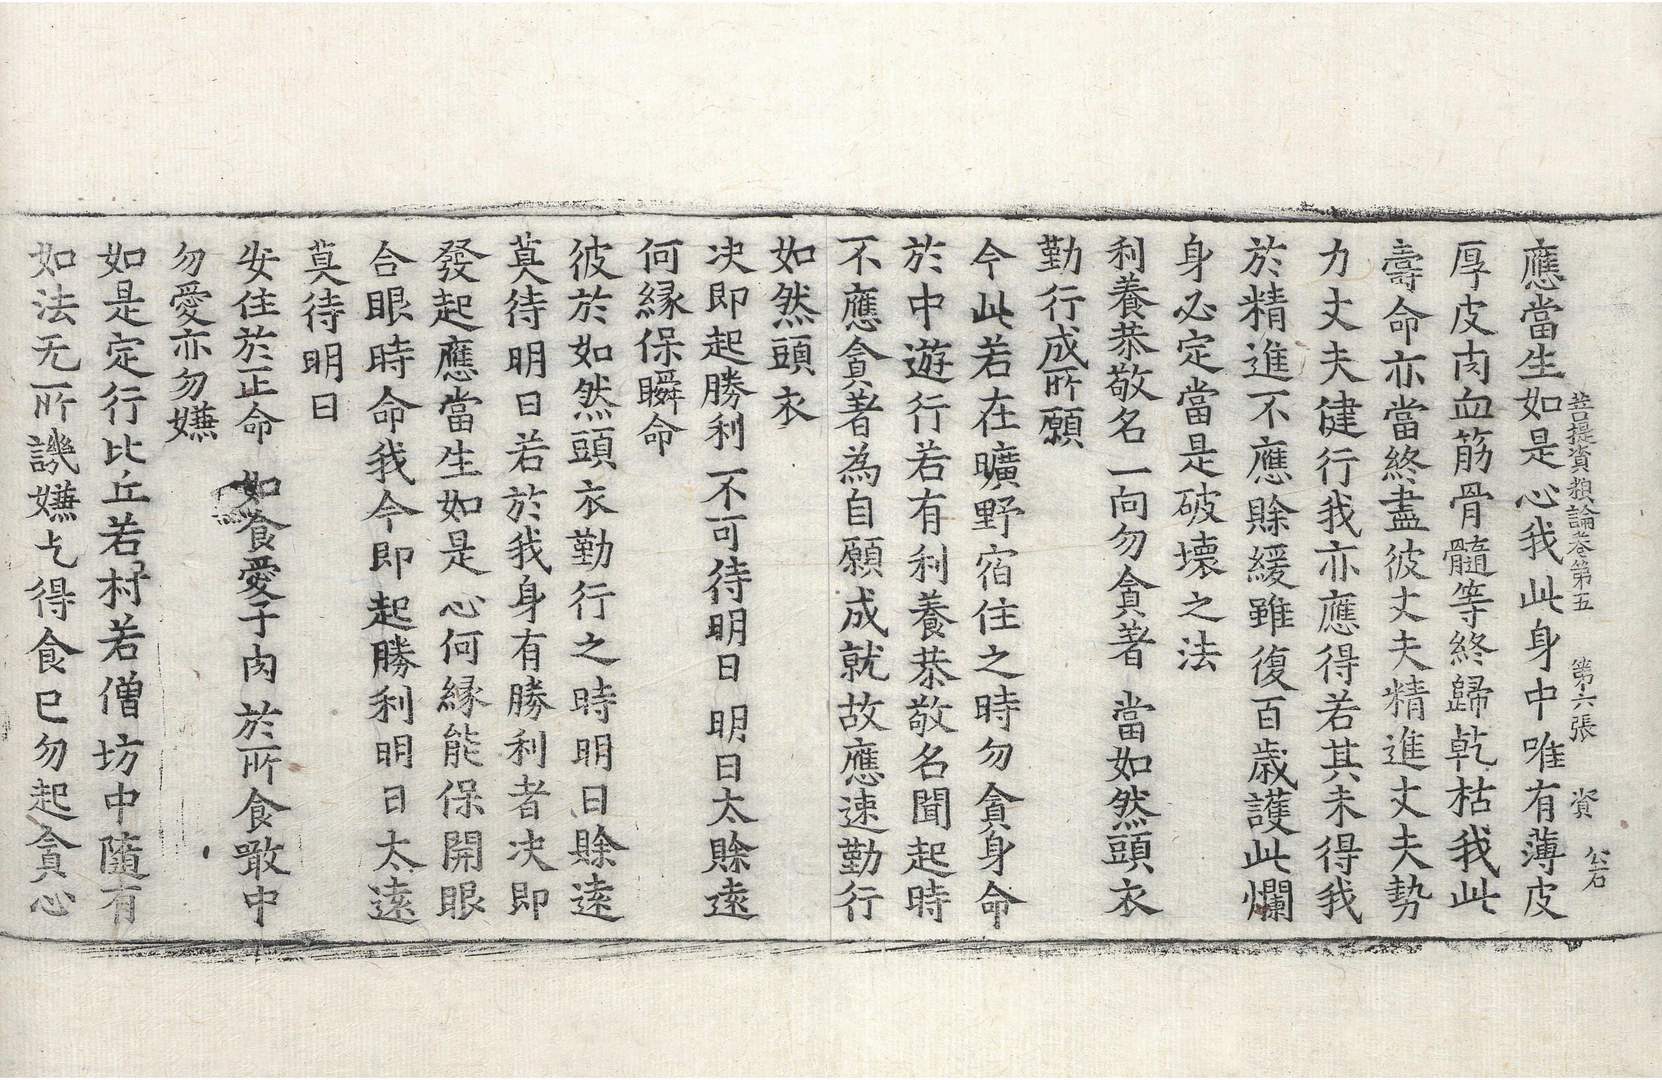 菩提資粮論卷第五　第六張　資　公石
應當生如是心我此身中唯有薄皮
厚皮肉血筋骨髓等終歸乾枯我此
壽命亦當終盡彼丈夫精進丈夫勢
力丈夫健行我亦應得若其未得我
於精進不應賒緩雖復百歲護此爛
身必定當是破壞之法
利養恭敬名一向勿貪著　當如然頭衣
勤行成所願
今此若在曠野宿住之時勿貪身命
於中遊行若有利養恭敬名聞起時
不應貪著為自願成就故應速勤行
如然頭衣
决即起勝利　不可待明日　明日太賒遠
何緣保瞬命
彼於如然頭衣勤行之時明日賒遠
莫待明日若於我身有勝利者决即
發起應當生如是心何緣能保開眼
合眼時命我今即起勝利明日太遠
莫待明日
安住於正命　如食愛子肉　於所食噉中
勿愛亦勿嫌
如是定行比丘若村若僧坊中隨有
如法无所譏嫌乞得食已勿起貪心